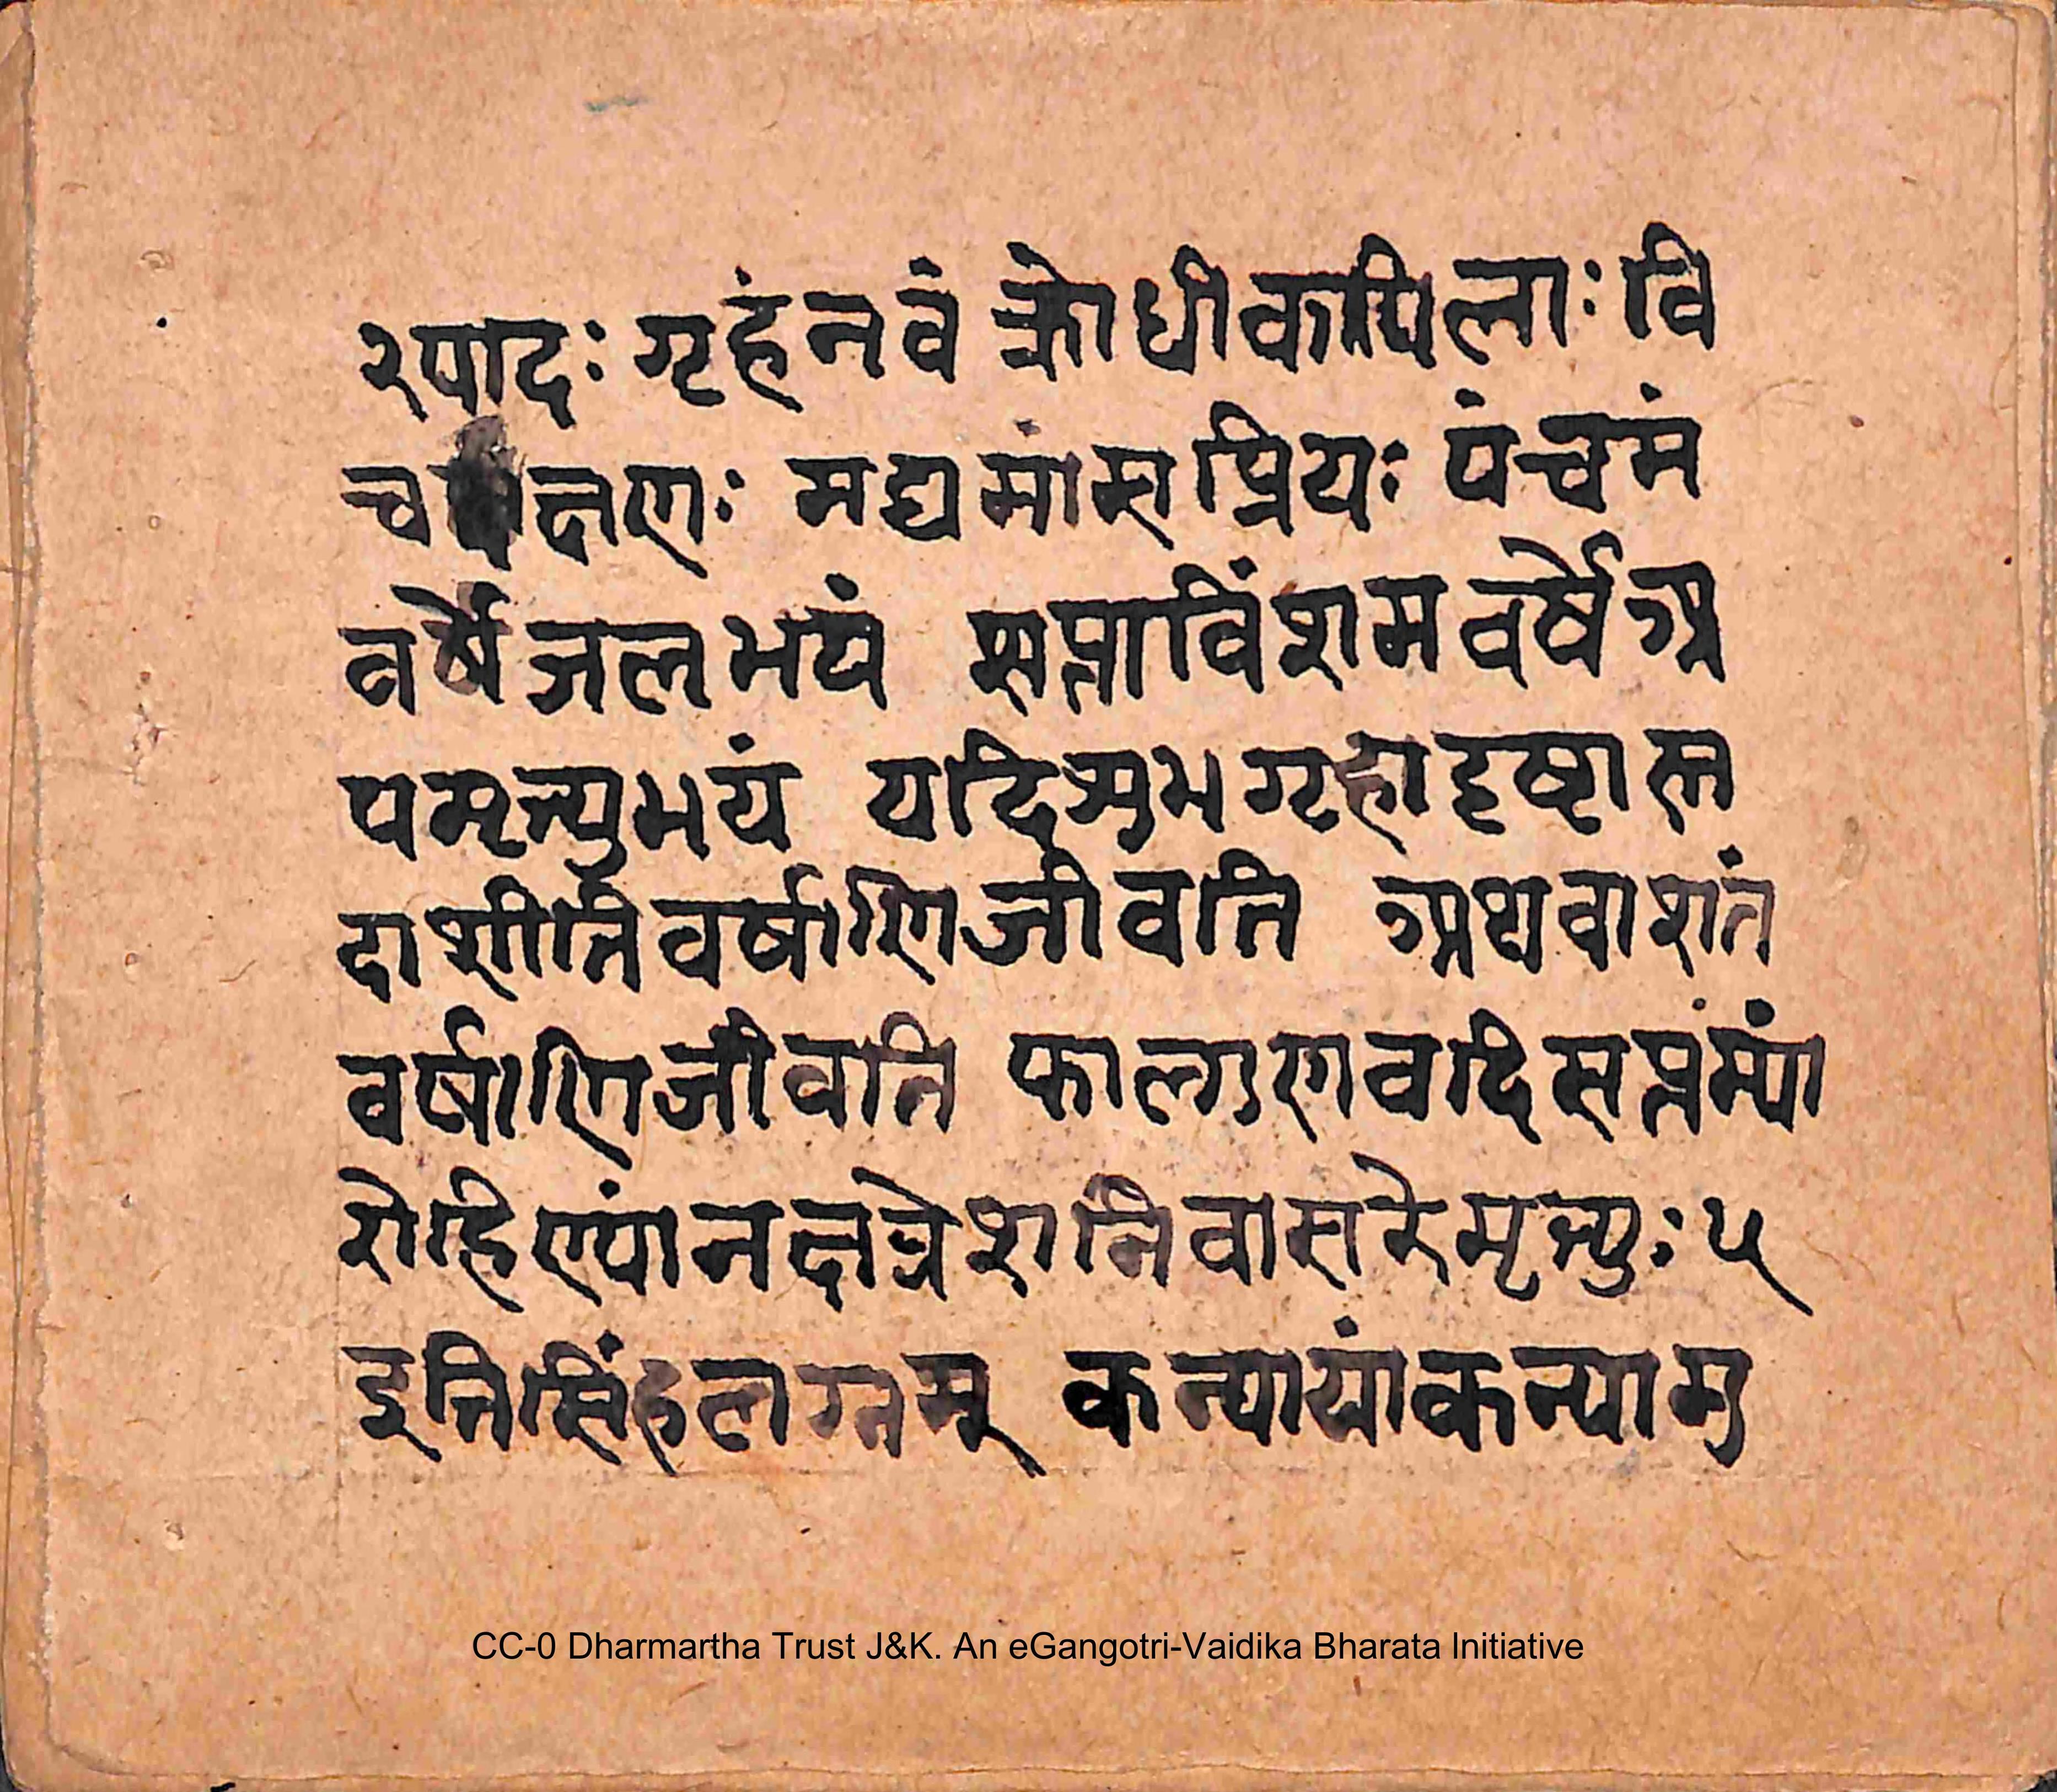 २पादः गृहंनवं क्रोधीकापिलाः वि
च क्षणः मद्यमांसप्रियः पंचमं
वर्षे जलभयं सप्ताविंशमवर्षे अ
पमृत्युभयं यदिशुभगृहादृष्टास्त
दाशीतिवर्षाणिजीवति अथवाशतं
वर्षाणिजीवति फाल्गुणवदिसप्तंम्यां
रोहिण्यांनक्षत्रेशनिवासरेमृत्युः५
इतिसिंहलग्नम् कन्यायांकन्यामु
CC-0 Dharmartha Trust J&K. An eGangotri-Vaidika Bharata Initiative